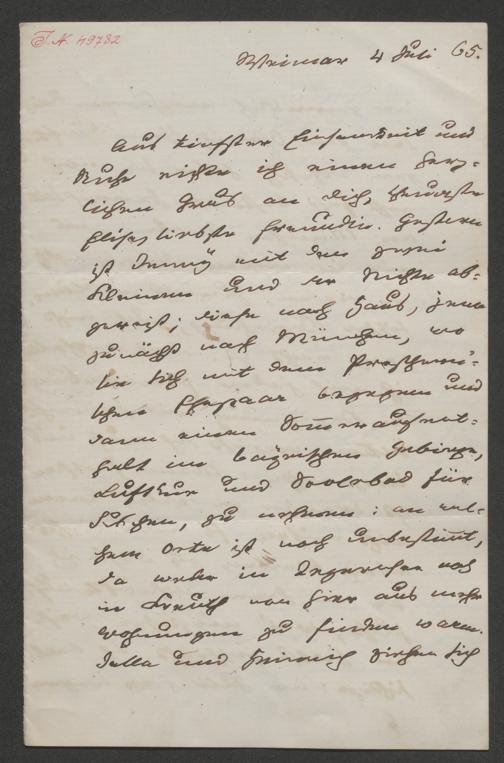 I. N. 49782
Weimar 4 Juli 65.
Aus tiefster Einsamkeit und
Ruhe richte ich einen herz-
lichen Gruß an dich, theuerste
Elise, liebste Freundin. Gestern
ist mit den zwei
Kleinen und der Nichte ab-
gereist; diese nach Haus, jene
zunächst nach München, wo
sie sich mit dem
schen Ehepaar begegnen und
dann einen Sommeraufent-
halt im bayrischen Gebirge,
Luftkur und Soolbad für
zu nehmen: an wel-
chem Orte ist noch unbestimmt,
da weder in Tegernsee noch
in Kreuth von hier aus mehr
Wohnungen zu finden waren.
und Heinrich ziehen sich